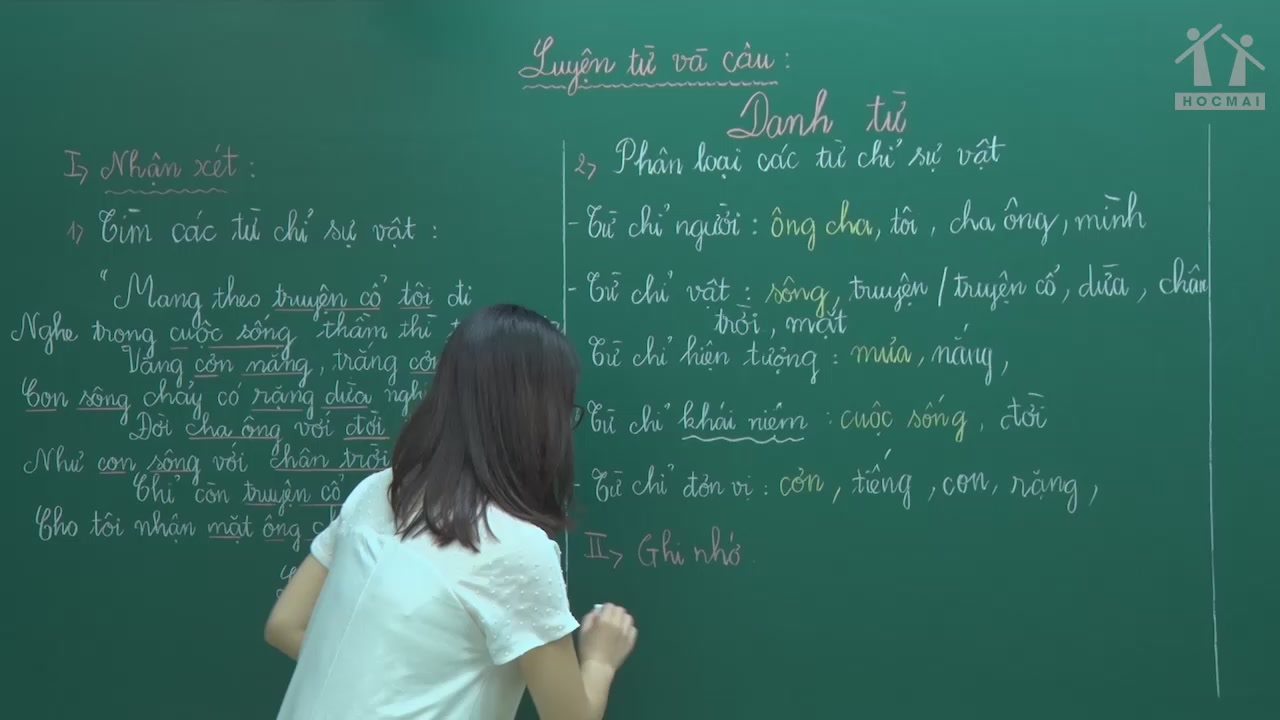 HOCMAI
Luyện từ và câu :
Danh từ
I, Nhận xét :
1, Tìm các từ chỉ sự vật :
"Mang theo truyện cổ tôi đi
Nghe trong cuộc sống thầm thì
Vàng cơn nắng, trắng cơn
Con sông chảy có rặng dừa
Đời cha ông với đời
Như con sông với chân trời
Chỉ còn truyện cổ
Cho tôi nhận mặt ông
2, Phân loại các từ chỉ sự vật
- Từ chỉ người : ông cha, tôi, cha ông, mình
- Từ chỉ vật : sông, truyện / truyện cổ, dừa, chân
trời, mặt
Từ chỉ hiện tượng : mưa, nắng,
Từ chỉ khái niệm : cuộc sống, đời
- Từ chỉ đơn vị : cơn, tiếng, con, rặng,
II, Ghi nhớ